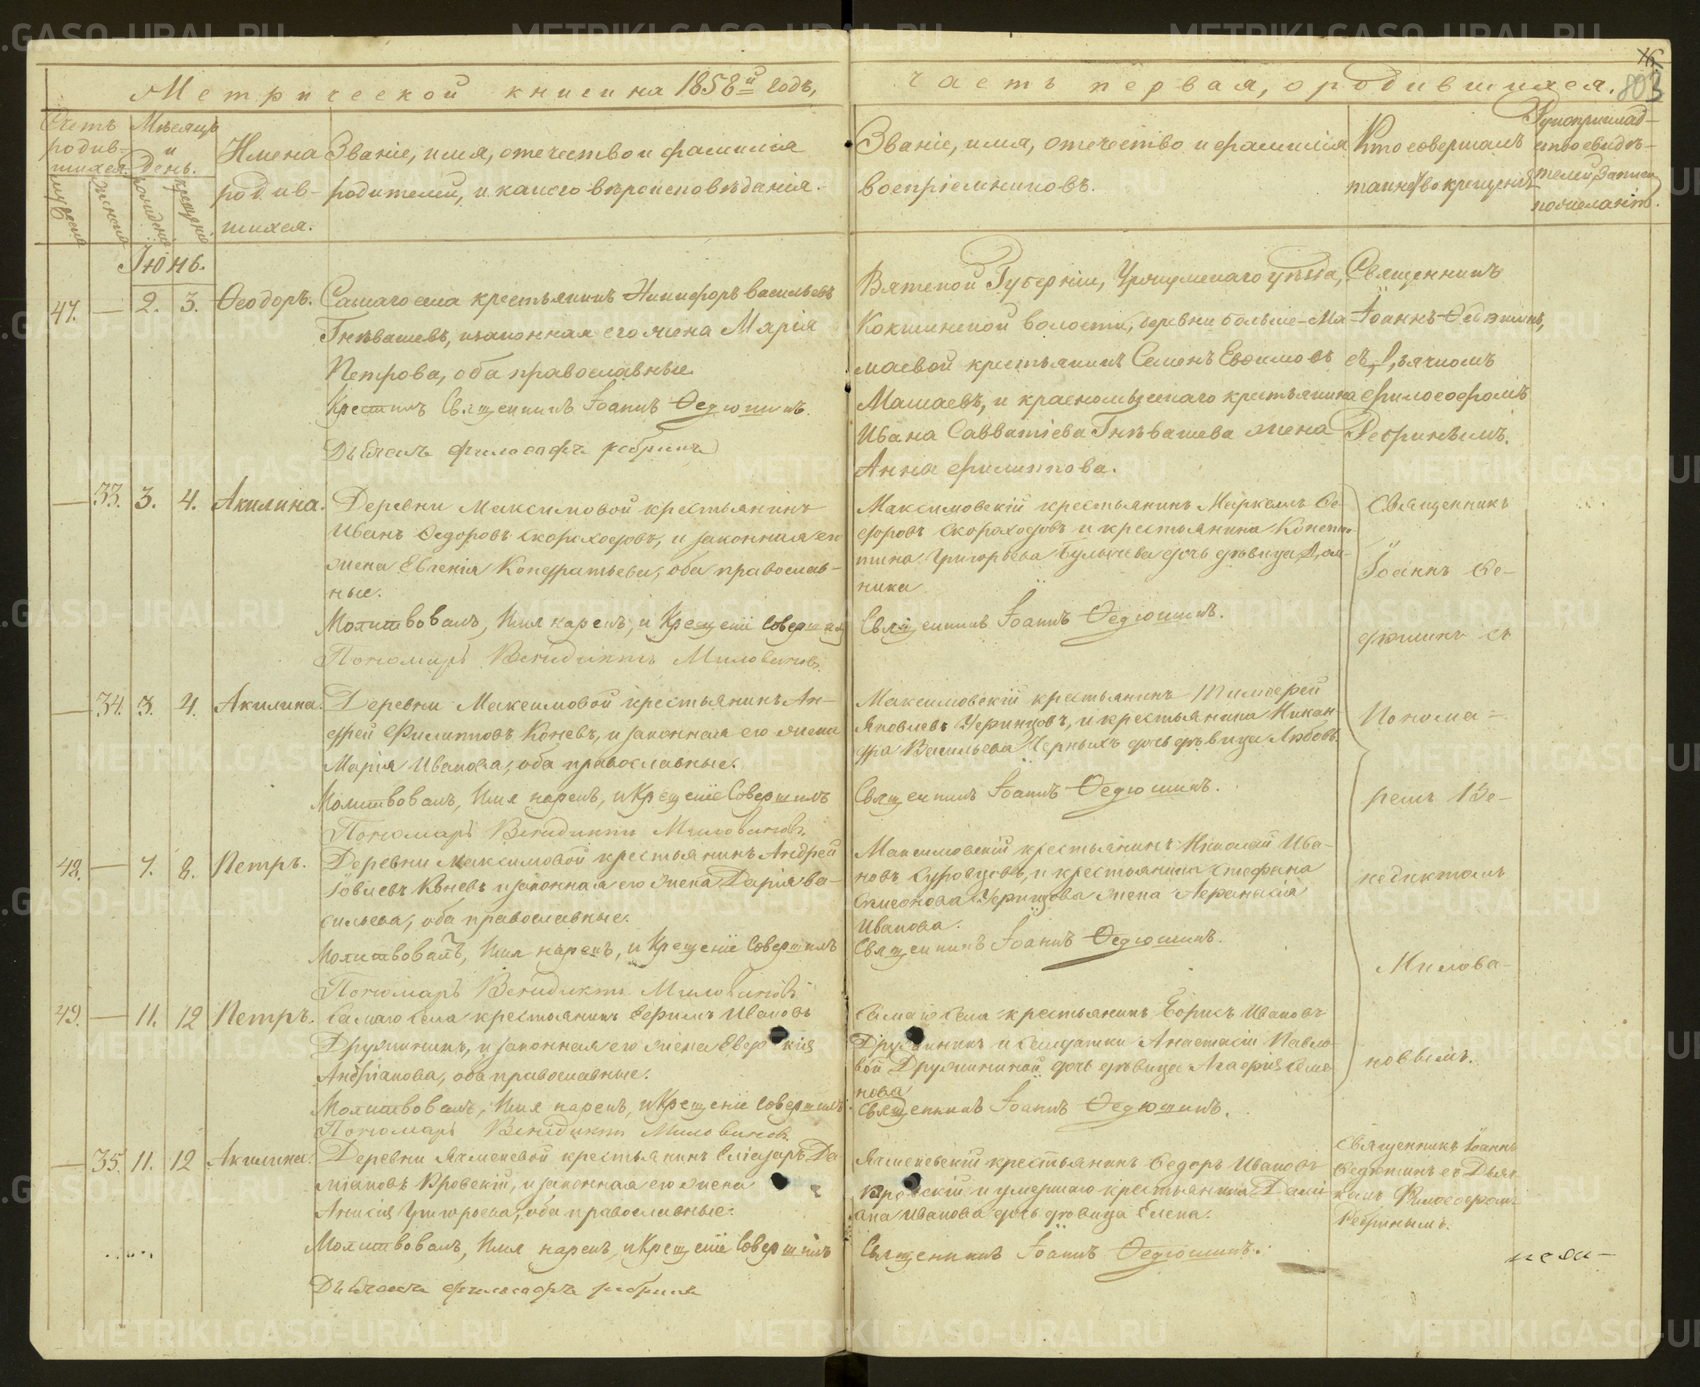 Метрической книги на 1858й годъ,
часть первая, о родившихся.
803
Счетъ родив-
шихся.
Мѣсяцъ
и
День.
Имена
родив-
шихся.
Званіе, имя, отечество и фамилія
родителей, и какого вѣроисповѣданія.
Званіе, имя, отечество и фамилія
воспріемниковъ.
Кто совершалъ
таинство крещенія
Рукоприклад-
ство свидѣ-
телей записи
по желанію.
мужеска
женска
рожденія
крещенія
Іюнь.
47. — 2. 3. Ѳеодоръ.
Самаго села крестьянинъ Никифоръ Васильевъ
Гнѣвашевъ, и законная его жена Марія
Петрова, оба православные
Крестилъ Священникъ Іоаннъ Ѳедюшинъ.
Дьячекъ философъ Ребринъ
Вятской Губерніи, Уржумскаго уѣзда,
Кокшинской волости, деревни больше-Ма-
маевой крестьянинъ Семенъ Евѳимовъ
Мамаевъ, и крестьянина
Ивана Савватіева Гнѣвашева жена
Анна Филиппова.
Священникъ
Іоаннъ Ѳедюшинъ,
съ Дьячкомъ
философомъ
Ребринымъ.
— 33. 3. 4. Акилина.
Деревни Максимовой крестьянинъ
Иванъ Ѳедоровъ Скороходовъ, и законная его
жена Евгенія Кондратьева, оба православ-
ные.
Молитвовалъ, Имя нарекъ, и Крещеніе совершилъ
Пономарь Венедиктъ Миловановъ
Максимовскій крестьянинъ Маркелъ Ѳе-
доровъ Скороходовъ и крестьянина Констан-
тина Григорьева Булычева дочь дѣвица Дом-
ника
Священникъ Іоаннъ Ѳедюшинъ.
Священникъ
Іоаннъ Ѳе-
дюшинъ съ
Понома-
ремъ Ве-
недиктомъ
Милова-
новымъ.
— 34. 3. 4. Акилина.
Деревни Максимовой крестьянинъ Ан-
дрей Филипповъ Коневъ, и законная его жена
Марія Иванова, оба православные.
Молитвовалъ, Имя нарекъ, и Крещеніе Совершилъ
Пономарь Венедиктъ Миловановъ
Максимовскій крестьянинъ Тимоѳей
Яковлевъ и крестьянина Никан-
дра Васильева Черныхъ дочь дѣвица Любовь.
Священникъ Іоаннъ Ѳедюшинъ.
48. — 7. 8. Петръ.
Деревни Максимовой крестьянинъ Андрей
Іовлевъ Коневъ и законная его жена Дарія Ва-
сильева, оба православные.
Молитвовалъ, Имя нарекъ, и Крещеніе Совершилъ
Пономарь Венедиктъ Миловановъ
Максимовскій крестьянинъ Николай Ива-
новъ Суровцовъ, и крестьянина Стефана
жена Аѳанасія
Иванова.
Священникъ Іоаннъ Ѳедюшинъ.
49. — 11. 12 Петръ.
Самаго села крестьянинъ Ефимъ Ивановъ
Дружининъ, и законная его жена Евдокія
Андріанова, оба православные.
Молитвовалъ, Имя нарекъ, и Крещеніе совершилъ
Пономарь Венедиктъ Миловановъ
Самаго села крестьянинъ Борисъ Ивановъ
Дружининъ и солдатки Анастасіи Павло-
вой Дружининой дочь дѣвица Агафія Семе-
нова
Священникъ Іоаннъ Ѳедюшинъ.
— 35. 11. 12 Акилина.
Деревни Ячменевой крестьянинъ Еліазаръ Да-
міановъ Кровскій, и законная его жена
Анисія Григорьева, оба православные.
Молитвовалъ, Имя нарекъ, и Крещеніе Совершилъ
Дьячекъ философъ Ребринъ
Ячменевскій крестьянинъ Ѳедоръ Ивановъ
Кровскій и умершаго крестьянина Дамі-
ана Иванова дочь дѣвица Елена.
Священникъ Іоаннъ Ѳедюшинъ.
Священникъ Іоаннъ
Ѳедюшинъ съ Дьяч-
комъ Философомъ
Ребринымъ.
METRIKI.GASO-URAL.RU